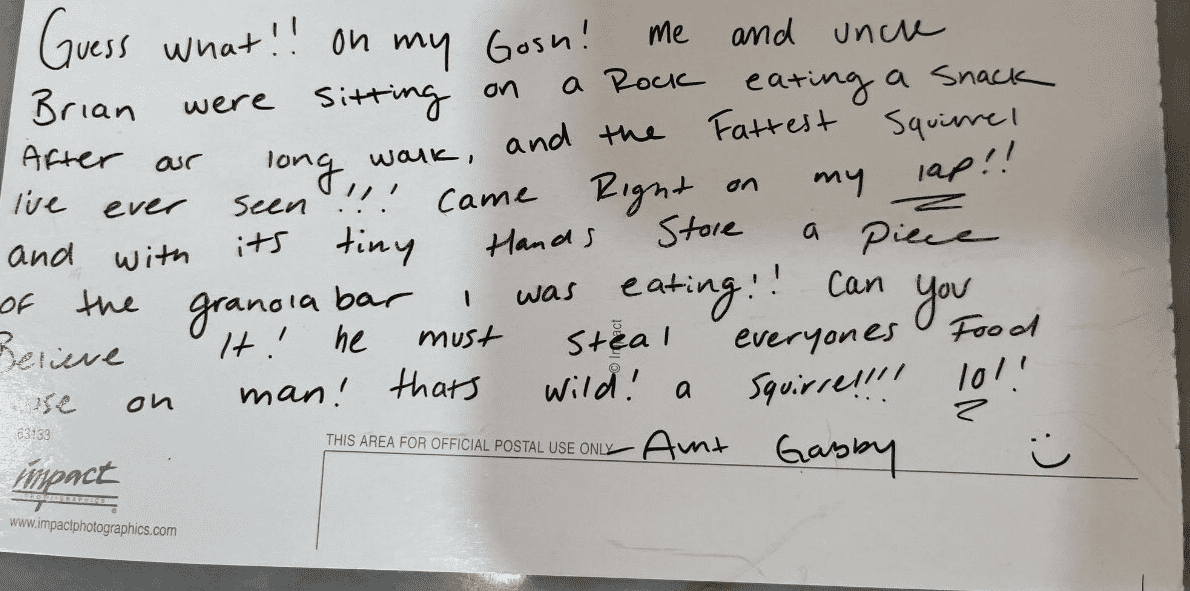 Guess what!! Oh my Gosh! Me and uncle
Brian were sitting on a Rock eating a snack
After our long walk, and the Fattest Squirrel
I've ever seen!!! Came Right on my lap!!
and with its tiny Hands Stole a piece
of the granola bar I was eating!! Can you
Believe It! he must steal everyones Food
on man! thats wild! a squirrel!!! lol!
63133
THIS AREA FOR OFFICIAL POSTAL USE ONLY
- Aunt Gabby :)
impact
PHOTOGRAPHICS
®
www.impactphotographics.com
© Impact